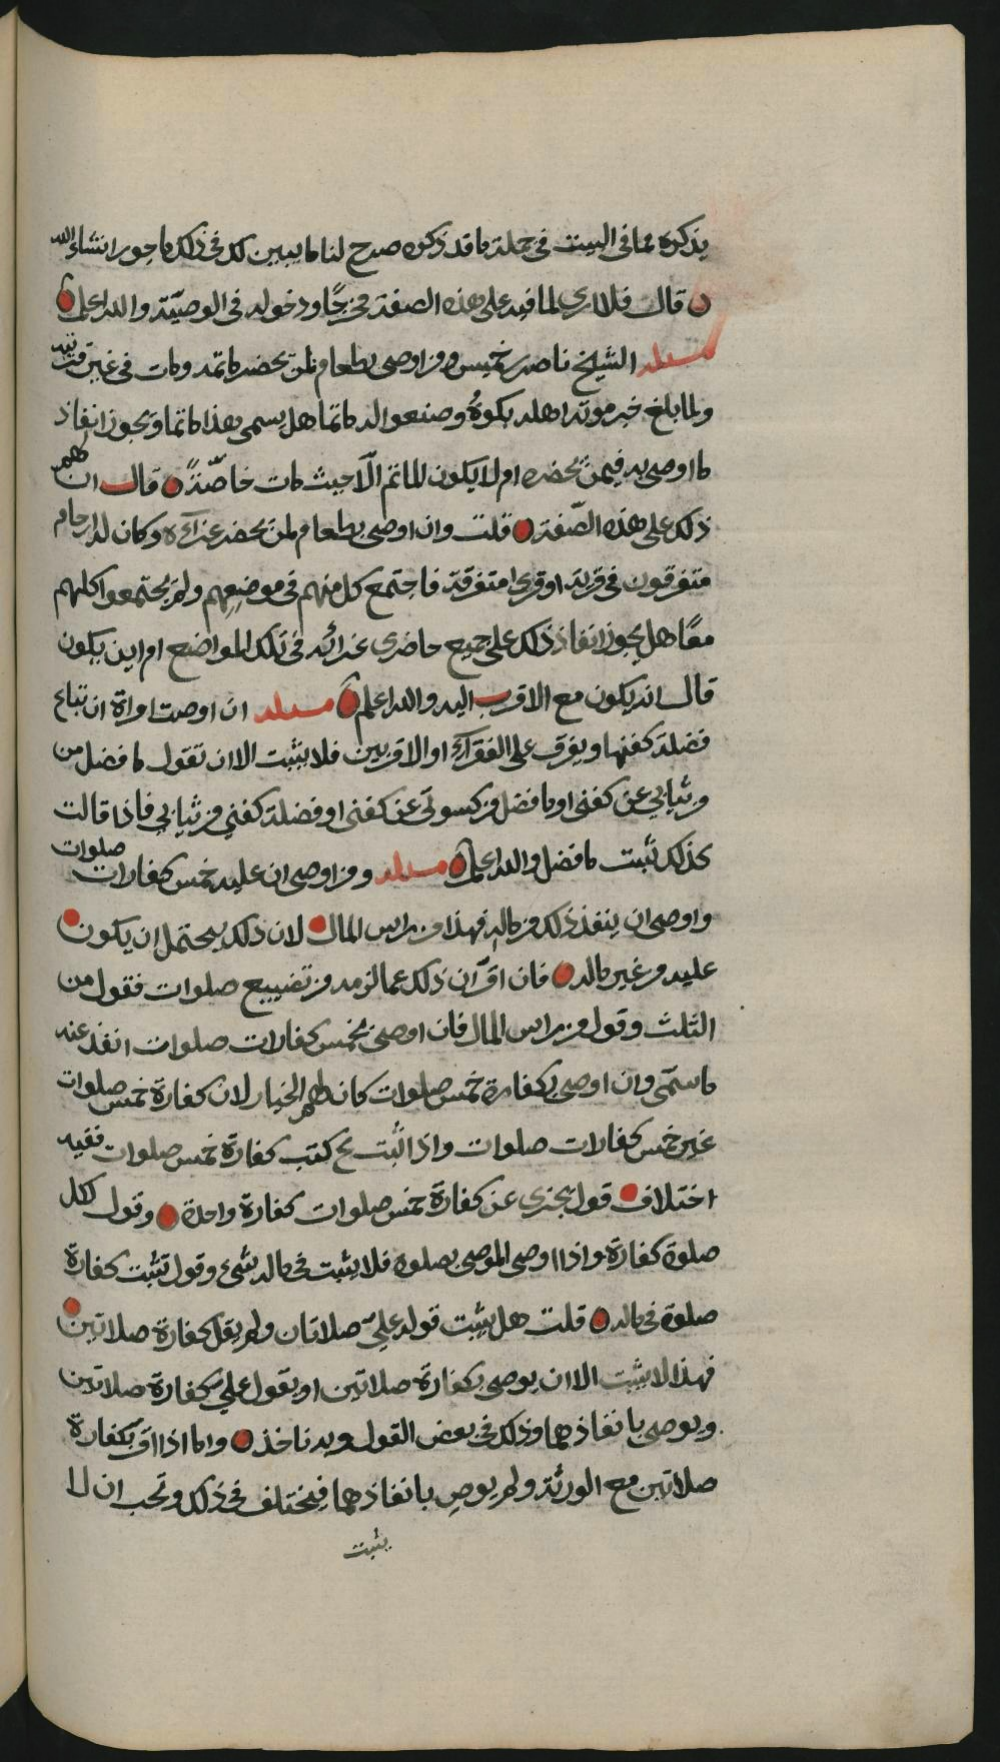 يذكره مما في البيت في جملة ما قد ذكره صرح لنا ما يبين لك في ذلك ماجورا انشاء الله
قال فلا ارى لما فيه على هذه الصفة مخرجًا ودخوله في الوصيّة والله اعلم
مسئلة الشيخ ناصر بن خميس ومن اوصى بطعام لمن يحضر ماتمه ومات في غير قريته
ولما بلغ خبر موته اهله بكوهُ وصنعوا له ماتما هل يسمى هذا ماتما ويجوز انفاذ
ما اوصى به فيمن يحضره ام لا يكون الماتم الّا حيث مات خاصّةً قال ان لهم
ذلك على هذه الصّفة قلت وان اوصى بطعام لمن يحضر عزآءه وكان له ارحام
متفرقون في قرية او قرى متفرقة فاجتمع كل منهم في موضعهم ولم يجتمعوا كلهم
معًا هل يجوز انفاذ ذلك على جميع حاضري عزائه في تلك المواضع ام اين يكون
قال انه يكون مع الاقرب اليه والله اعلم مسئلة ان اوصت امراة ان تباع
فضلة كفنها ويفرق على الفقرآء او الاقربين فلا يثبت الا ان تقول ما فضل من
وثيابي عن كفني او ما فضل من كسوتي عن كفني او فضلة كفني من ثيابي فاذا قالت
كذلك ثبت ما فضل والله اعلم مسئلة ومن اوصى ان عليه خمس كفارات صلوات
واوصى ان ينفذ ذلك من ماله فهذا من راس المال لان ذلك يحتمل ان يكون
عليه من غير ماله فان اقرّ ان ذلك عما لزمه من تضييع صلوات فقول من
الثلث وقول من راس المال فان اوصى بخمس كفارات صلوات انفذ عنه
ما سمّى وان اوصى بكفارة خمس صلوات كان لهم الخيار لان كفارة خمس صلوات
غير خمس كفارات صلوات واذا اثبت ع كتب كفارة خمس صلوات ففيه
اختلاف قول يجزي عن كفارة خمس صلوات كفارة واحدة وقول لكل
صلوة كفارة واذا اوصى الموصي بصلوة فلا يثبت في ماله شيء وقول تثبت كفارة
صلوة في ماله قلت هل يثبت قوله عليّ صلاتان ولم يقل كفارة صلاتين
فهذا لا يثبت الا ان يوصي بكفارة صلاتين او يقول عليّ كفارة صلاتين
ويوصي بانفاذهما وذلك في بعض القول وبه ناخذ واما اذا اقر بكفارة
صلاتين مع الورثة ولم يوصِ بانفاذهما فيختلف في ذلك ونحب ان لا
يثبت